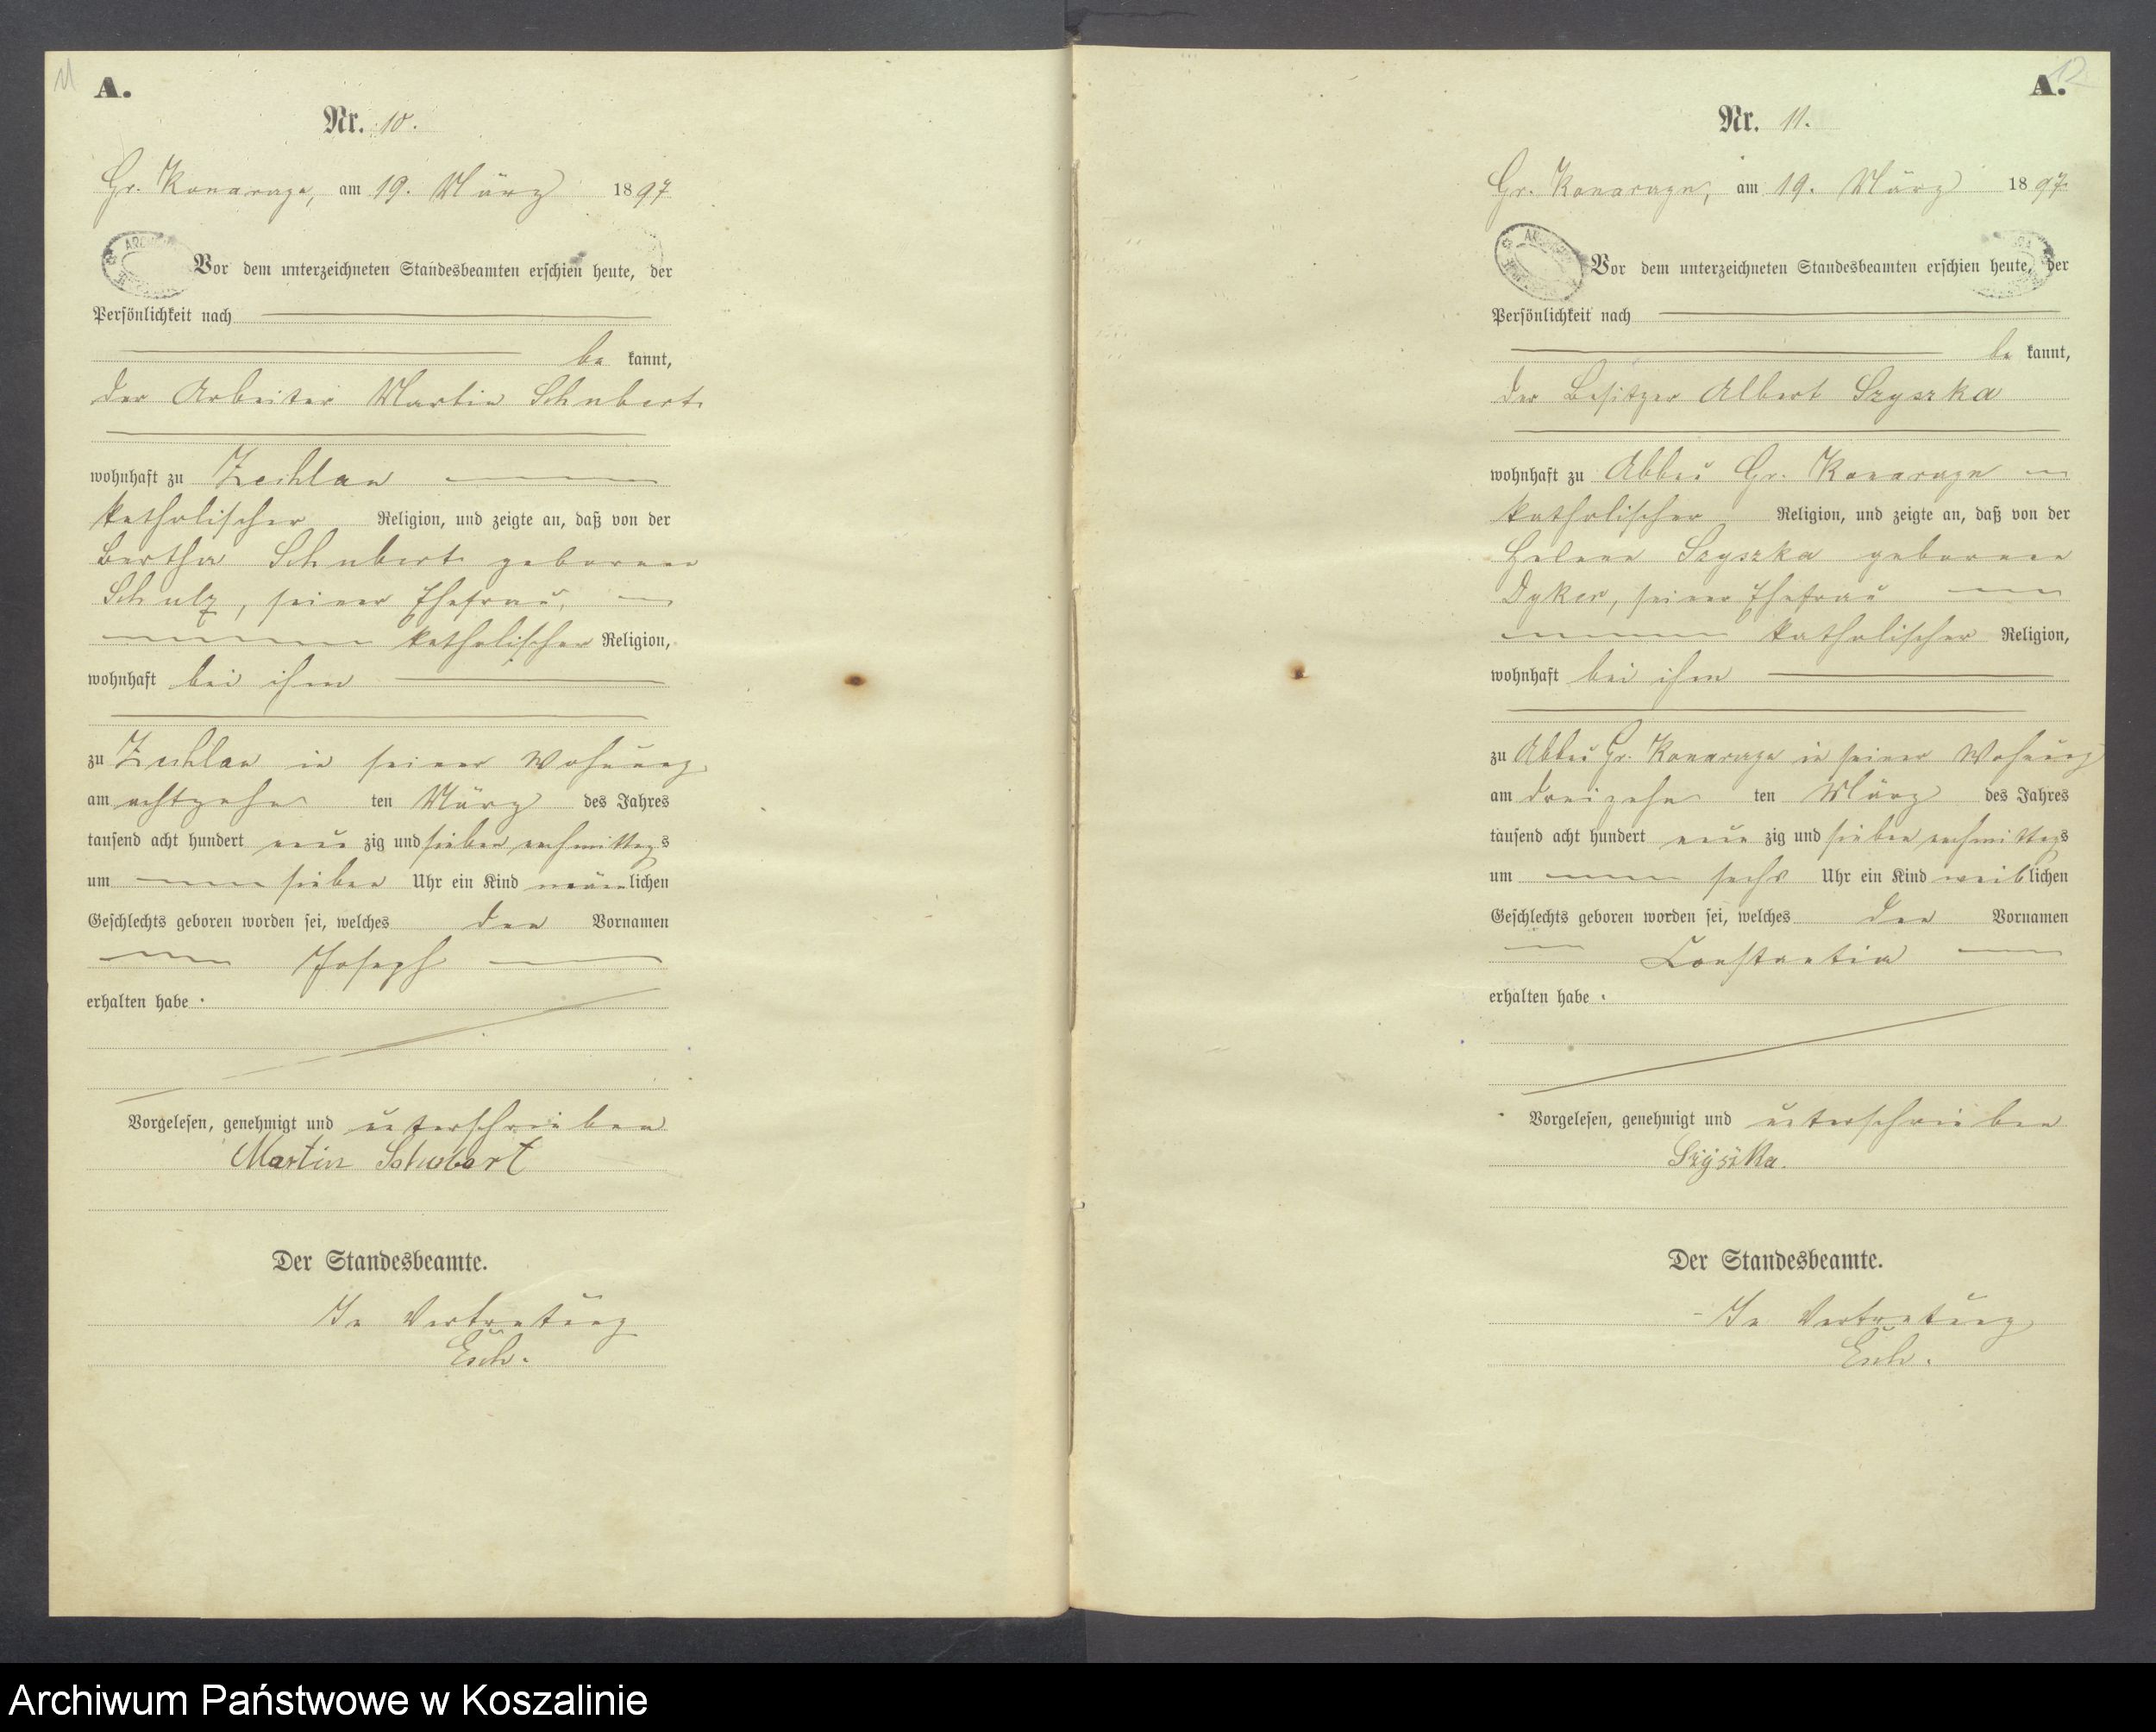 11
A.
Nr. 10.
Gr. Konarczyn, am 19. März 1897
Vor dem unterzeichneten Standesbeamten erschien heute, der
Persönlichkeit nach
be kannt,
der Arbeiter Martin Schubert
wohnhaft zu Zechlau
katholischer Religion, und zeigte an, daß von der
Bertha Schubert geborenen
Schulz, seiner Ehefrau,
katholischer Religion,
wohnhaft bei ihm
zu Zechlau in seiner Wohnung
am achtzehn ten März des Jahres
tausend acht hundert neun zig und sieben nachmittags
um sieben Uhr ein Kind männlichen
Geschlechts geboren worden sei, welches den Vornamen
Joseph
erhalten habe.
Vorgelesen, genehmigt und unterschrieben
Martin Schubert
Der Standesbeamte.
In Vertretung
12
A.
Nr. 11.
Gr. Konarczyn, am 19. März 1897.
Vor dem unterzeichneten Standesbeamten erschien heute, der
Persönlichkeit nach
be kannt,
der Besitzer Albert Szyszka
wohnhaft zu Abbau Gr. Konarczyn
katholischer Religion, und zeigte an, daß von der
Helene Szyszka geborenen
Dyker, seiner Ehefrau
katholischer Religion,
wohnhaft bei ihm
zu Abbau Gr. Konarczyn in seiner Wohnung
am dreizehn ten März des Jahres
tausend acht hundert neun zig und sieben nachmittags
um sechs Uhr ein Kind weiblichen
Geschlechts geboren worden sei, welches den Vornamen
Constantia
erhalten habe.
Vorgelesen, genehmigt und unterschrieben
Szyszka.
Der Standesbeamte.
In Vertretung
Archiwum Państwowe w Koszalinie